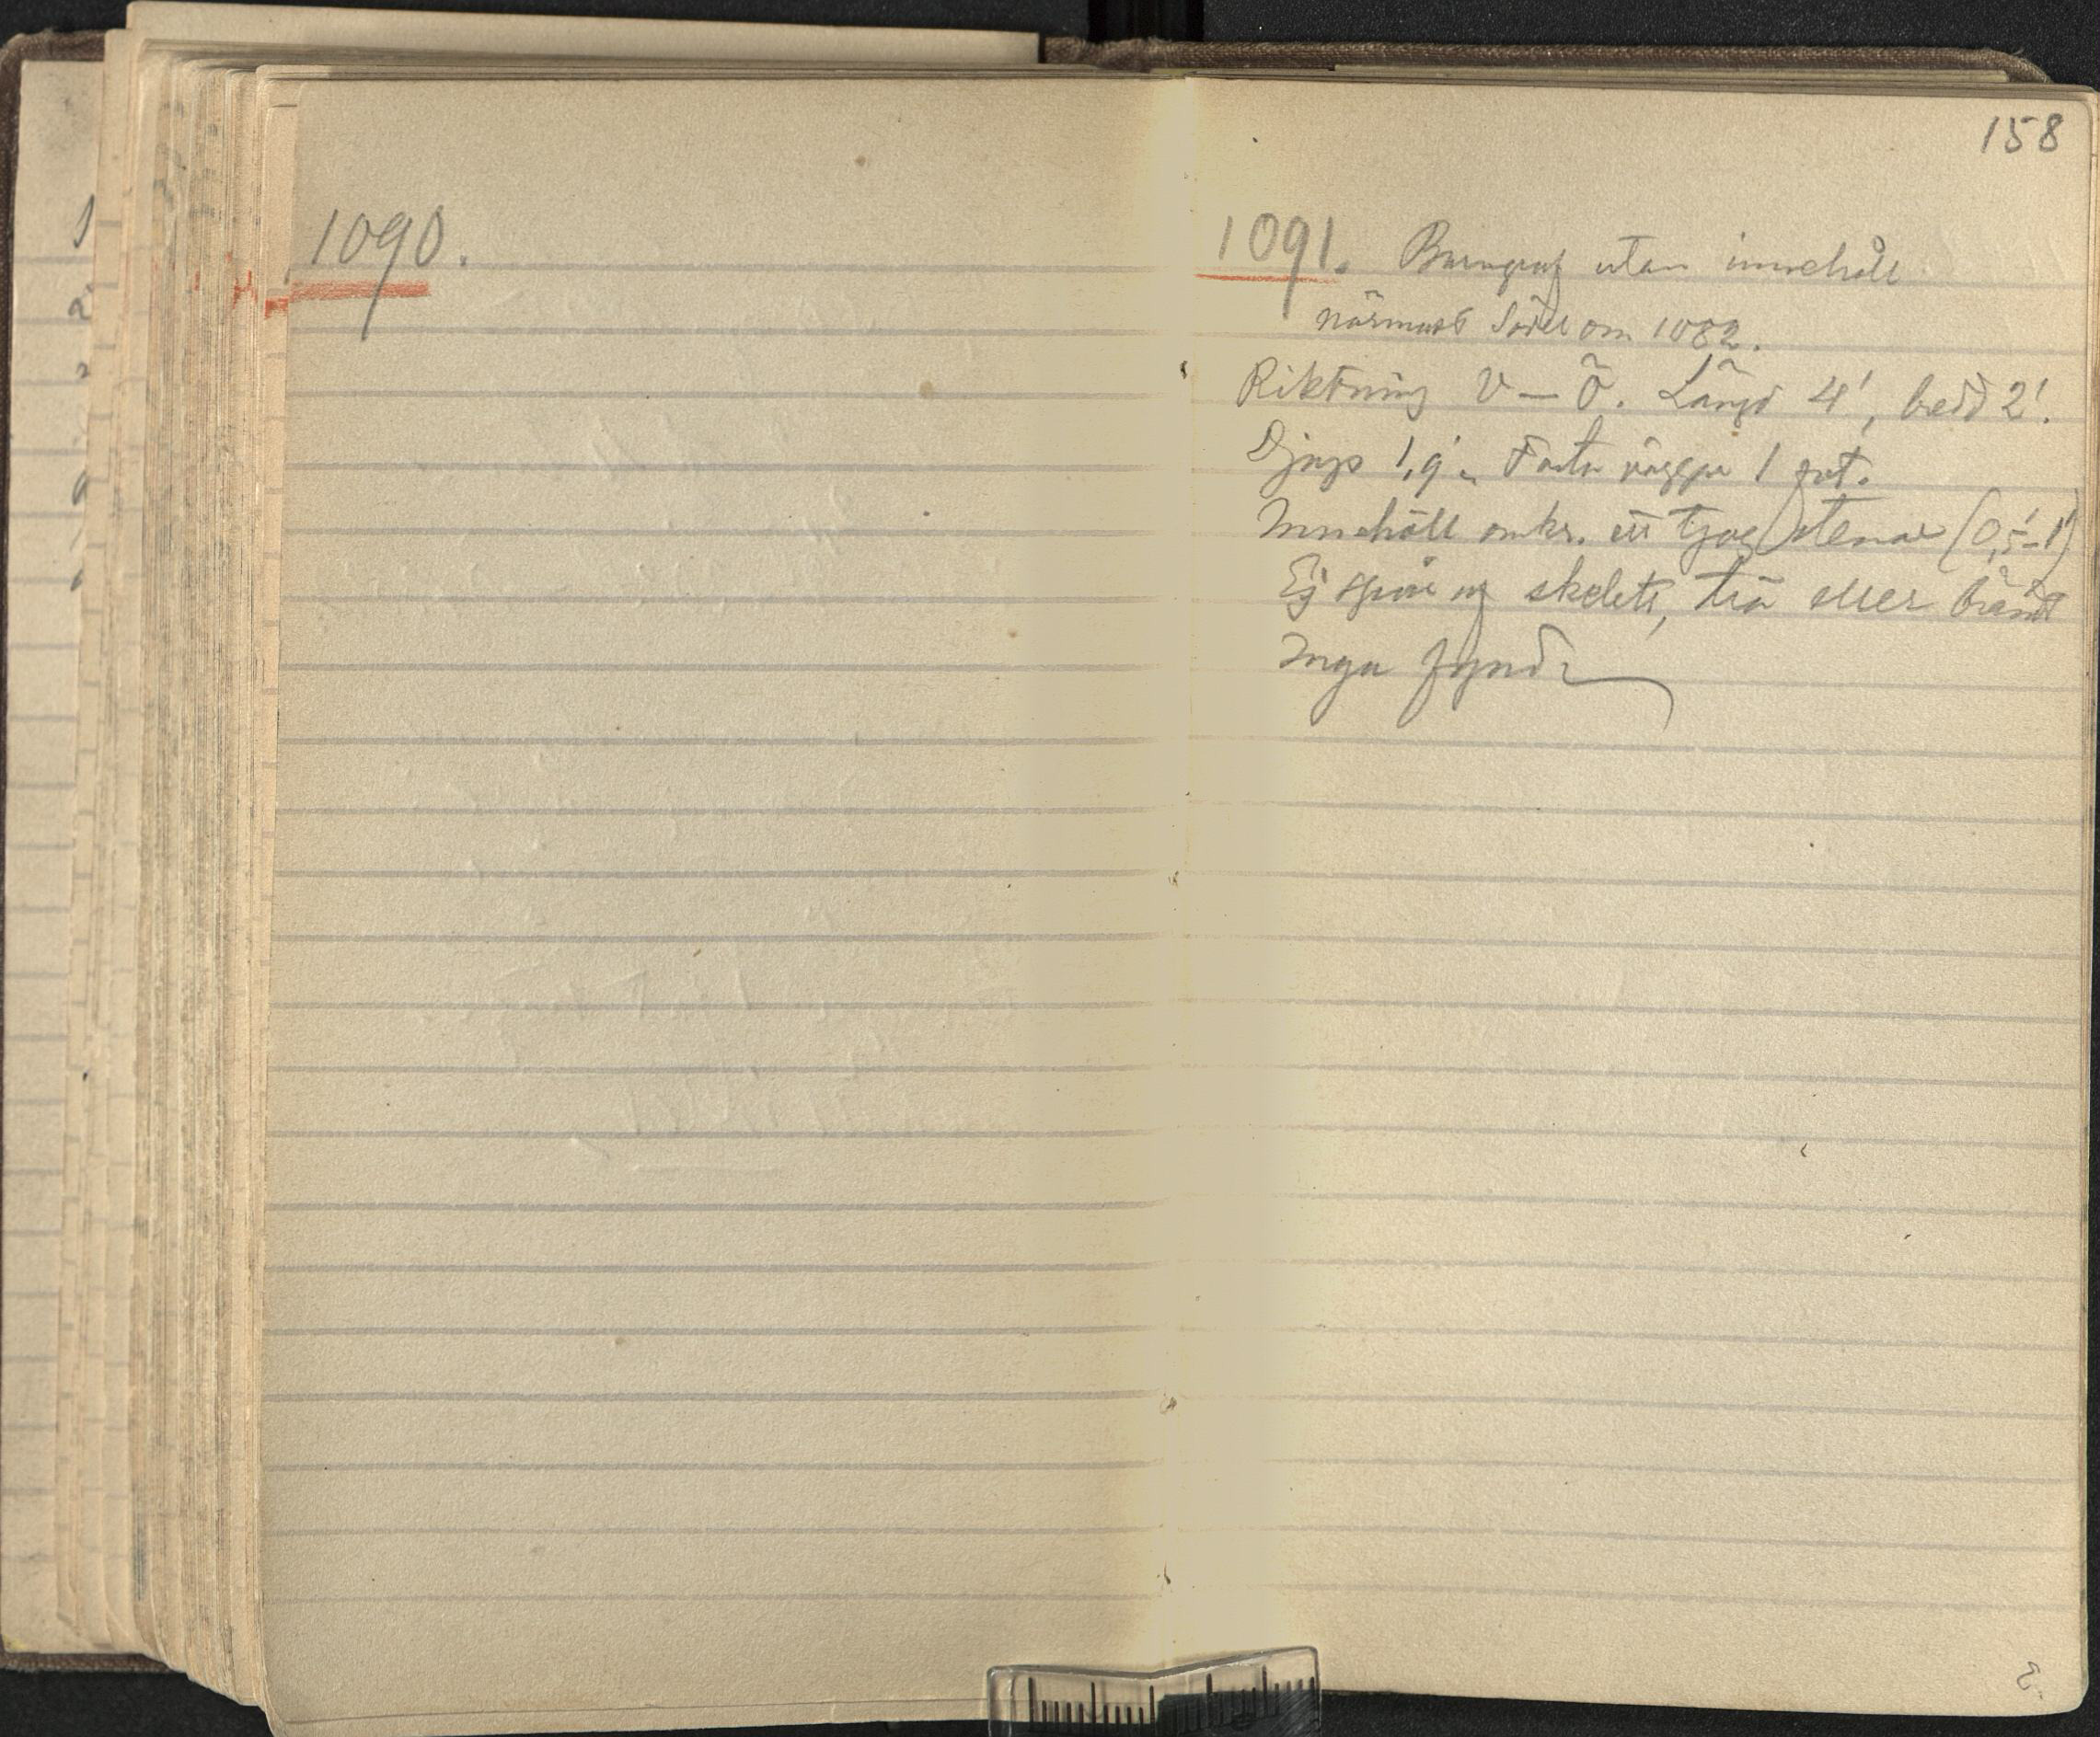 158
1090.
1091. Barngraf utan innehåll
närmast söder om 1082.
Riktning V—Ö. Längd 4', bredd 2'.
Djup 1,9'. Fasta väggar 1 fot.
Innehöll omkr. ett tjog stenar (0,5'-1')
Ej spår af skelett, trä eller brändt
Inga fynd